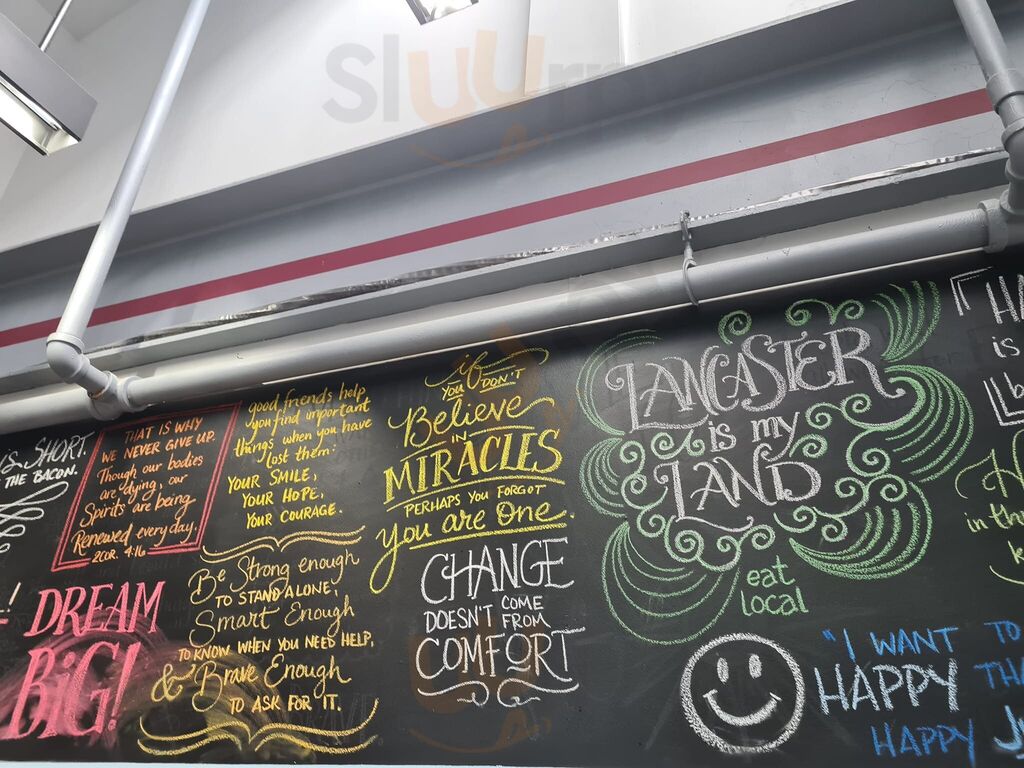 Sluurpy
IS SHORT.
THE BACON.
THAT IS WHY
WE NEVER GIVE UP.
Though our bodies
are dying, our
Spirits are being
Renewed every day.
2COR. 4:16
DREAM
BiG!
good friends help
you find important
things when you have
lost them:
YOUR SMILE,
YOUR HOPE,
YOUR COURAGE.
Be Strong enough
TO STAND ALONE,
Smart Enough
TO KNOW WHEN YOU NEED HELP,
& Brave Enough
TO ASK FOR IT.
if
YOU DON'T
Believe
IN
MIRACLES
PERHAPS YOU FORGOT
You are One.
CHANGE
DOESN'T COME
FROM
COMFORT
LANCASTER
is my
LAND
eat
local
"I WANT TO
HAPPY
HAPPY
is
in th